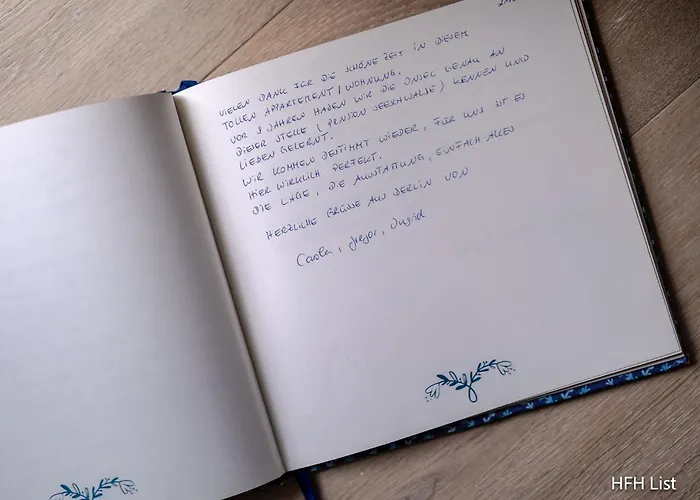 VIELEN DANK FÜR DIE SCHÖNE ZEIT IN DIESEM
TOLLEN APPARTEMENT / WOHNUNG.
VOR 8 JAHREN HABEN WIR DIE INSEL GENAU AN
DIESER STELLE (PENSION SEESCHWALBE) KENNEN UND
LIEBEN GELERNT.
WIR KOMMEN BESTIMMT WIEDER, FÜR UNS IST ES
HIER WIRKLICH PERFEKT.
DIE LAGE, DIE AUSSTATTUNG, EINFACH ALLES
HERZLICHE GRÜSSE AUS BERLIN VON
Carola, Gregor, Ingrid
HFH List